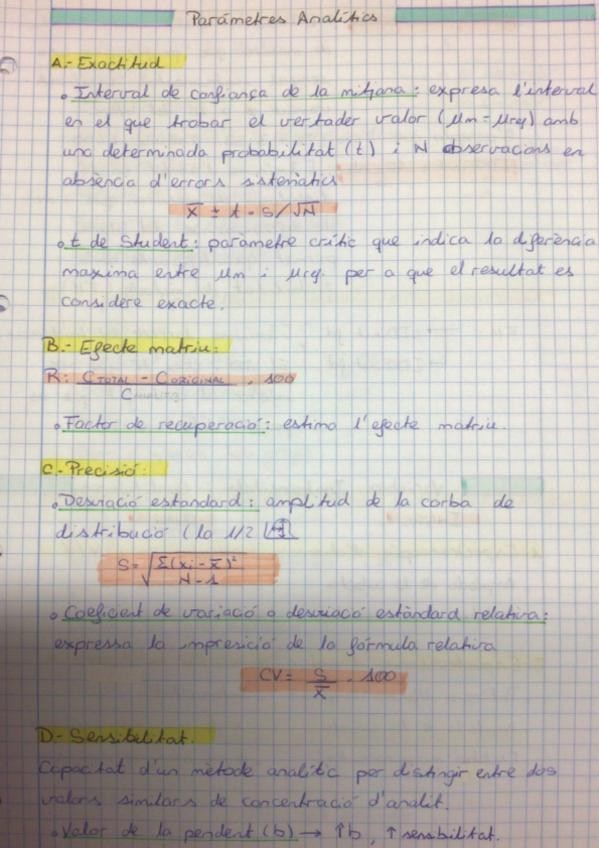 Paràmetres Analítics
A.- Exactitud
• Interval de confiança de la mitjana: expresa l'interval
en el que trobar el vertader valor (μm = μref) amb
una determinada probabilitat (t) i N observacions en
absència d'errors sistemàtics
x̄ ± t · s/√N
• t de Student: paràmetre crític que indica la diferència
maxima entre μm i μref. per a que el resultat es
considere exacte.
B.- Efecte matriu:
R: (C TOTAL - C ORIGINAL) / C · 100
• Factor de recuperació: estima l'efecte matriu.
C.- Precisió:
• Desviació estandard: amplitud de la corba de
distribució (la 1/2
S = √(Σ(xi - x̄)² / N-1)
• Coeficient de variació o desviació estàndard relativa:
expressa la impresició de la fórmula relativa
CV = S/x̄ · 100
D- Sensibilitat.
Capacitat d'un mètode analític per distingir entre dos
valors similars de concentració d'analit.
• Valor de la pendent (b) → ↑b, ↑ sensibilitat.